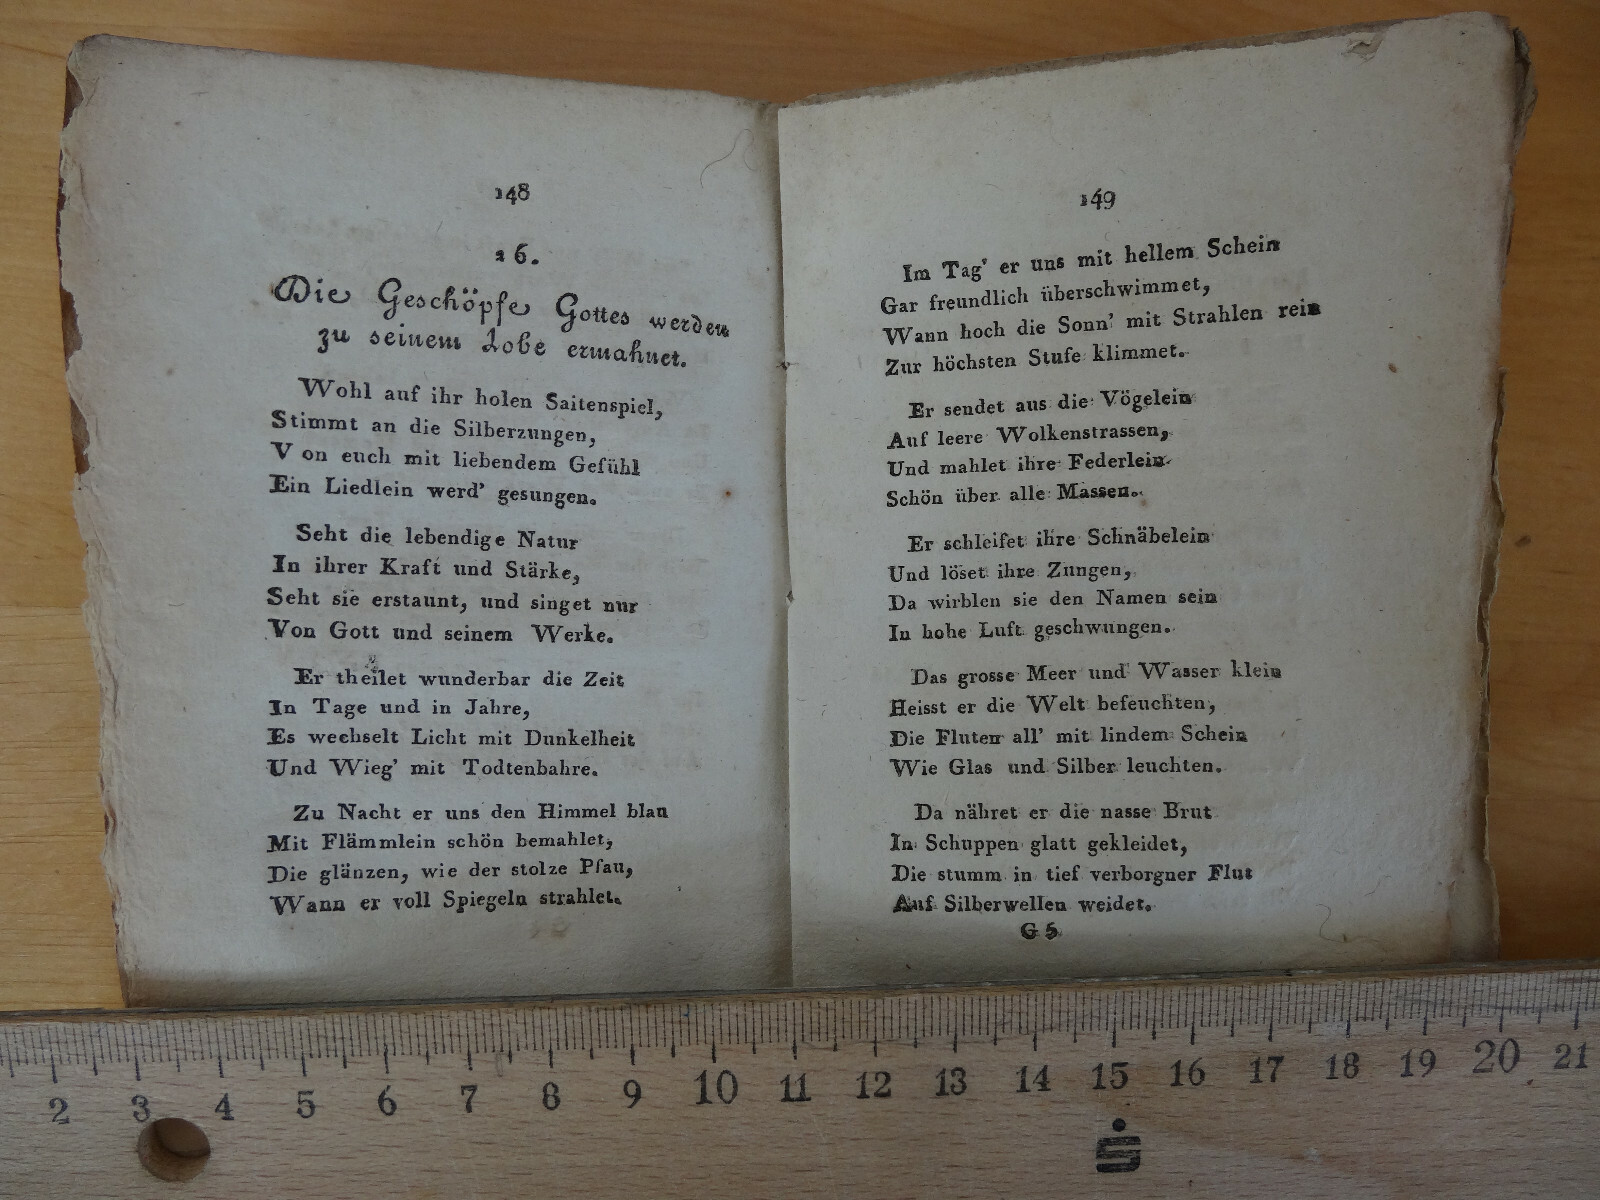 148
26.
Die Geschöpfe Gottes werden
zu seinem Lobe ermahnet.
Wohl auf ihr holen Saitenspiel,
Stimmt an die Silberzungen,
Von euch mit liebendem Gefühl
Ein Liedlein werd' gesungen.
Seht die lebendige Natur
In ihrer Kraft und Stärke,
Seht sie erstaunt, und singet nur
Von Gott und seinem Werke.
Er theilet wunderbar die Zeit
In Tage und in Jahre,
Es wechselt Licht mit Dunkelheit
Und Wieg' mit Todtenbahre.
Zu Nacht er uns den Himmel blau
Mit Flämmlein schön bemahlet,
Die glänzen, wie der stolze Pfau,
Wann er voll Spiegeln strahlet.
149
Im Tag' er uns mit hellem Schein
Gar freundlich überschwimmet,
Wann hoch die Sonn' mit Strahlen rein
Zur höchsten Stufe klimmet.
Er sendet aus die Vögelein
Auf leere Wolkenstrassen,
Und mahlet ihre Federlein
Schön über alle Massen.
Er schleifet ihre Schnäbelein
Und löset ihre Zungen,
Da wirblen sie den Namen sein
In hohe Luft geschwungen.
Das grosse Meer und Wasser klein
Heisst er die Welt befeuchten,
Die Fluten all' mit lindem Schein
Wie Glas und Silber leuchten.
Da nähret er die nasse Brut
In Schuppen glatt gekleidet,
Die stumm in tief verborgner Flut
Auf Silberwellen weidet.
G 5
2 3 4 5 6 7 8 9 10 11 12 13 14 15 16 17 18 19 20 21